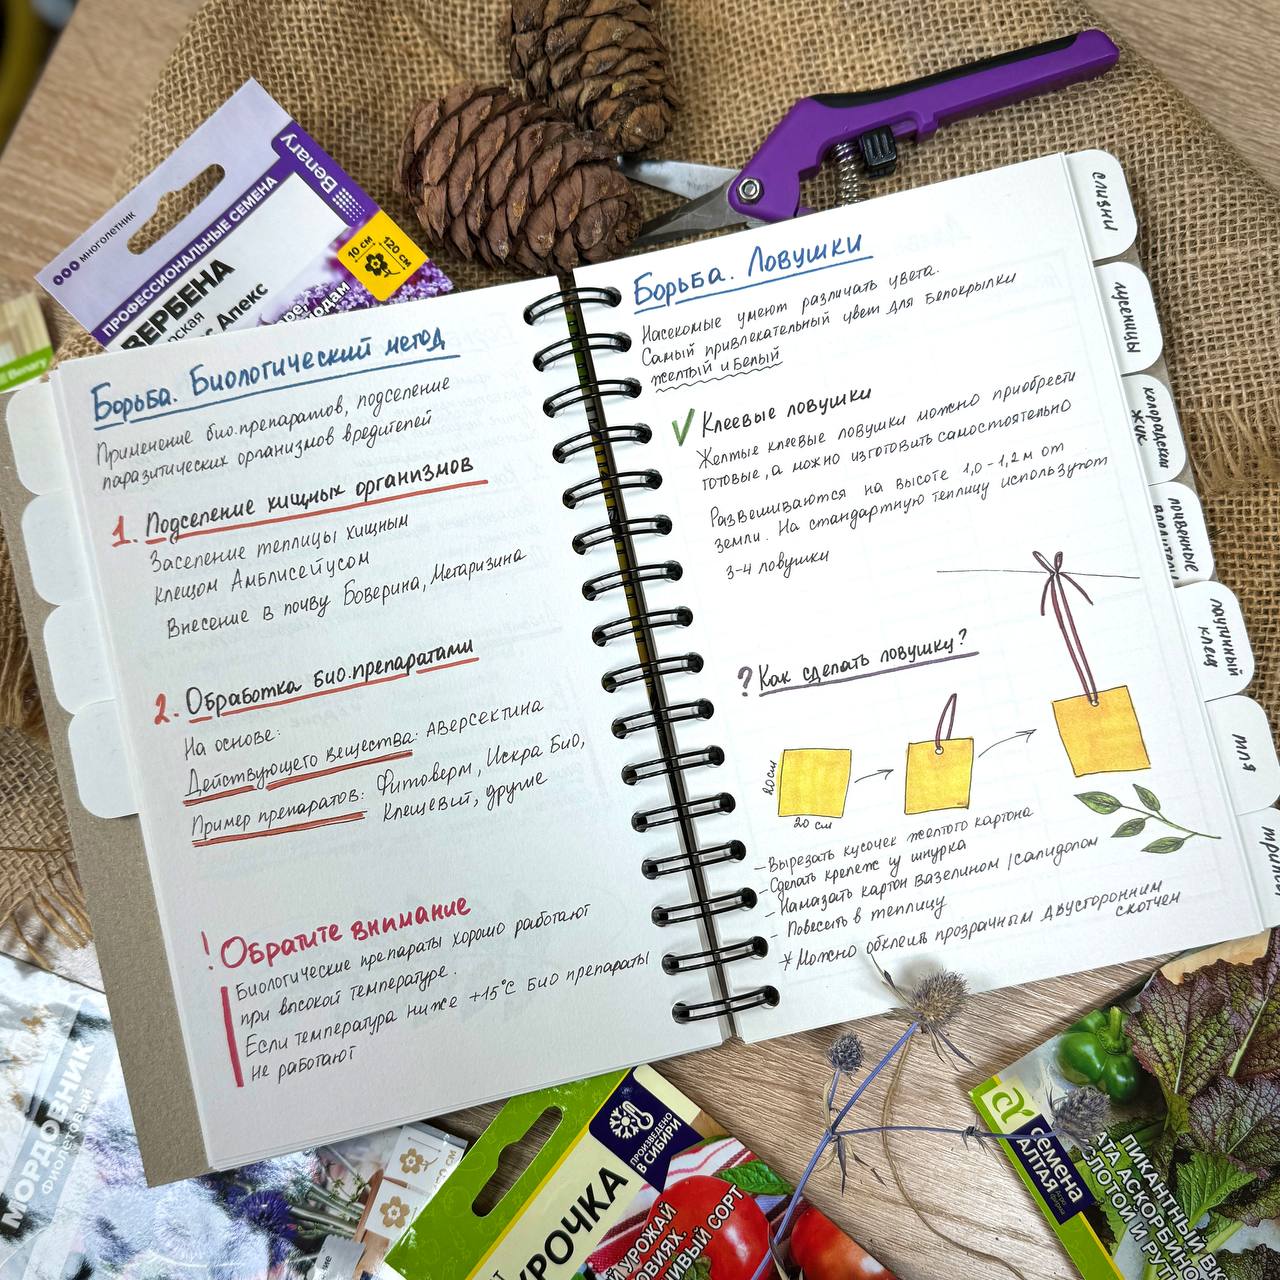 Борьба. Биологический метод
Применение био.препаратов, подселение
паразитических организмов вредителей
1. Подселение хищных организмов
Заселение теплицы хищным
клещом Амблисейусом
Внесение в почву Боверина, Метаризина
2. Обработка био.препаратами
На основе:
Действующего вещества: Аверсектина
Пример препаратов: Фитоверм, Искра Био,
Клещевит, другие
! Обратите внимание
Биологические препараты хорошо работают
при высокой температуре.
Если температура ниже +15°С био препараты
не работают
Борьба. Ловушки
Насекомые умеют различать цвета.
Самый привлекательный цвет для Белокрылки
желтый и Белый
Клеевые ловушки
Желтые клеевые ловушки можно приобрести
готовые, а можно изготовить самостоятельно
Развешиваются на высоте 1,0-1,2м от
земли. На стандартную теплицу используют
3-4 ловушки
? Как сделать ловушку?
20см
20 см
- Вырезать кусочек желтого картона
- Сделать крепеж из шнурка
- Намазать картон вазелином / салидолом
- Повесить в теплицу
* Можно обклеить прозрачным двусторонним
скотчем
слизни
гусеницы
колорадский
жук
почвенные
паутинный
клещ
тля
Benary
многолетник
ПРОФЕССИОНАЛЬНЫЕ СЕМЕНА
ВЕРБЕНА
Апекс
10 см
120 см
Benary
МОРДОВНИК
Фиолетовый
ПРОИЗВЕДЕНО
В СИБИРИ
УРОЖАЙ
СОРТ
семена
АЛТАЯ
ПИКАНТНЫЙ